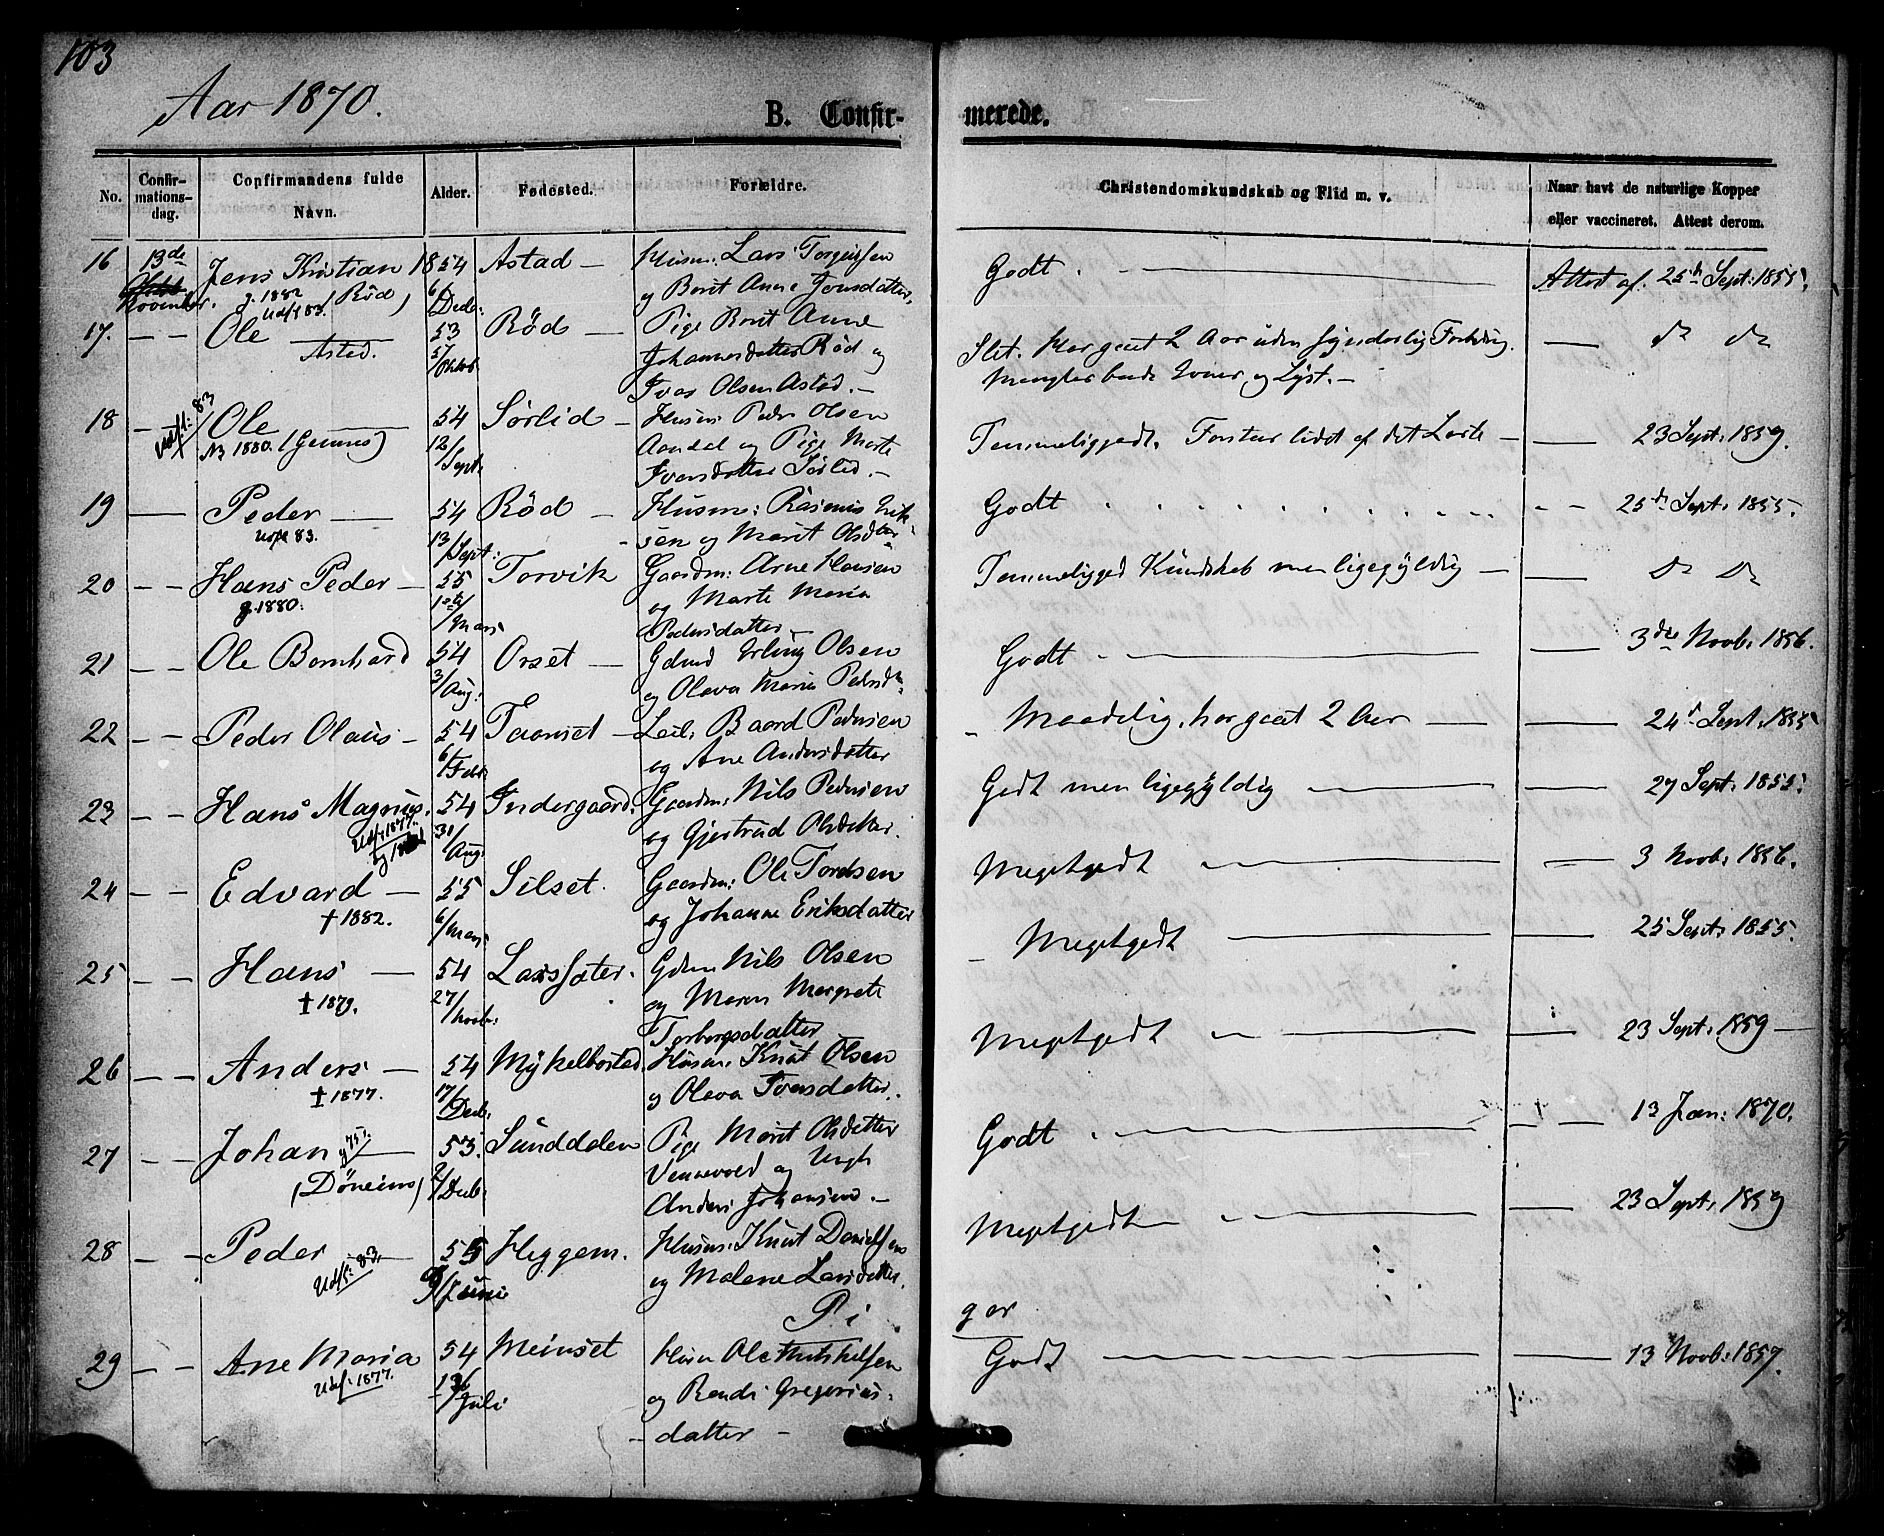 103
Aar 1870.
B. Confir- merede.
No. Confir-mations-dag. Confirmandens fulde Navn. Alder. Fødested. Forældre. Christendomskundskab og Flid m. v. Naar havt de naturlige Kopper eller vaccineret. Attest derom.
16 13de November. Jens Kristian 1854 Astad — Husm: Lars Torgersen Godt. — Attest af. 25de Sept: 1855.
g. 1882 (Röd) 6/Decb: og Berit Anne Jonsdatter.
Udf: 83.
17. — — Ole 53 Röd — Pige Berit Anne Slet. Har gaaet 2 Aar uden synderlig Fremgang. — do do
Astad. 5/Oktob Johannesdatter Röd og Mangler baade Evner og Lyst. —
Ivar Olsen Astad. —
18 — Udfl: 83 Ole 54 Sörlid — Husm: Peder Olsen Temmeliggodt. Forstaar lidt af det Lærte — — 23 Sept: 1859.
1880. (Gimnes) 12/Sept: Aandal og Pige Marte
Iversdatter Sörlid. —
19 — Peder — 54 Röd — Husm: Rasmus Erik- Godt — — 25de Sept: 1855.
Udfl 83. 13/Sept: sen og Marit Olsdtter
20 — — Hans Peder — 55 Torvik Gaardm: Arne Hansen Temmeliggod Kundskab men ligegyldig — — do do
g. 1880. 1ste/Mars og Marte Maria
Pedersdatter —
21 — — Ole Bernhard 54 Orset — Gdmd Erling Olsen Godt. — — 3die Novb: 1856.
3/Aug: og Olava Maria Pedersd
22 — — Peder Olaus — 54 Taarset — Leil: Baard Pedersen Maadelig, har gaaet 2 Aar — — 24de Sept. 1855
6/Febr og Ane Andersdatter
23 — — Hans Magnus. 54 Indergaard. Gaardm: Nils Pedersen Godt men ligegyldig — — 27 Sept. 1855.
Udf: 1877. 31/Aug: og Gjertrud Olsdatter.
24 — — Edvard — 55 Silset. Gaardm: Ole Tordsen Megetgodt — — 3 Novb: 1856.
† 1882. 6/Mars og Johanne Eriksdatter
25 — — Hans — 54 Larssæter. Gdm Nils Olsen Megetgodt — — 25 Sept: 1855.
† 1879. 27/Novb: og Maren Margrete
Torbergsdatter
26 — — Anders — 54 Mÿkelbostad. Husm: Knut Olsen Megetgodt — — 23 Sept: 1859 —
† 1877. 17/Decb: og Olava Iversdatter.
27 — — Johan 53. Sunddalen Pige Marit Olsdatter Godt. — — 13 Jan: 1870.
(Döneims) 2/Decb: Vennevold og Ungk
Anders Johansen. —
28 — — Peder 55 Heggem. Husm: Knut Danielsen Megetgodt — 23 Sept: 1859
Udfl: 83. 9/Juni og Malene Larsdatter.
Pi ger
29 — — Ane Maria 54 Meinset Husm Ole Ketilsen Godt — — 13 Novb: 1857.
Udf: 1877. 13/Juli og Randi Gregorius-
— datter —